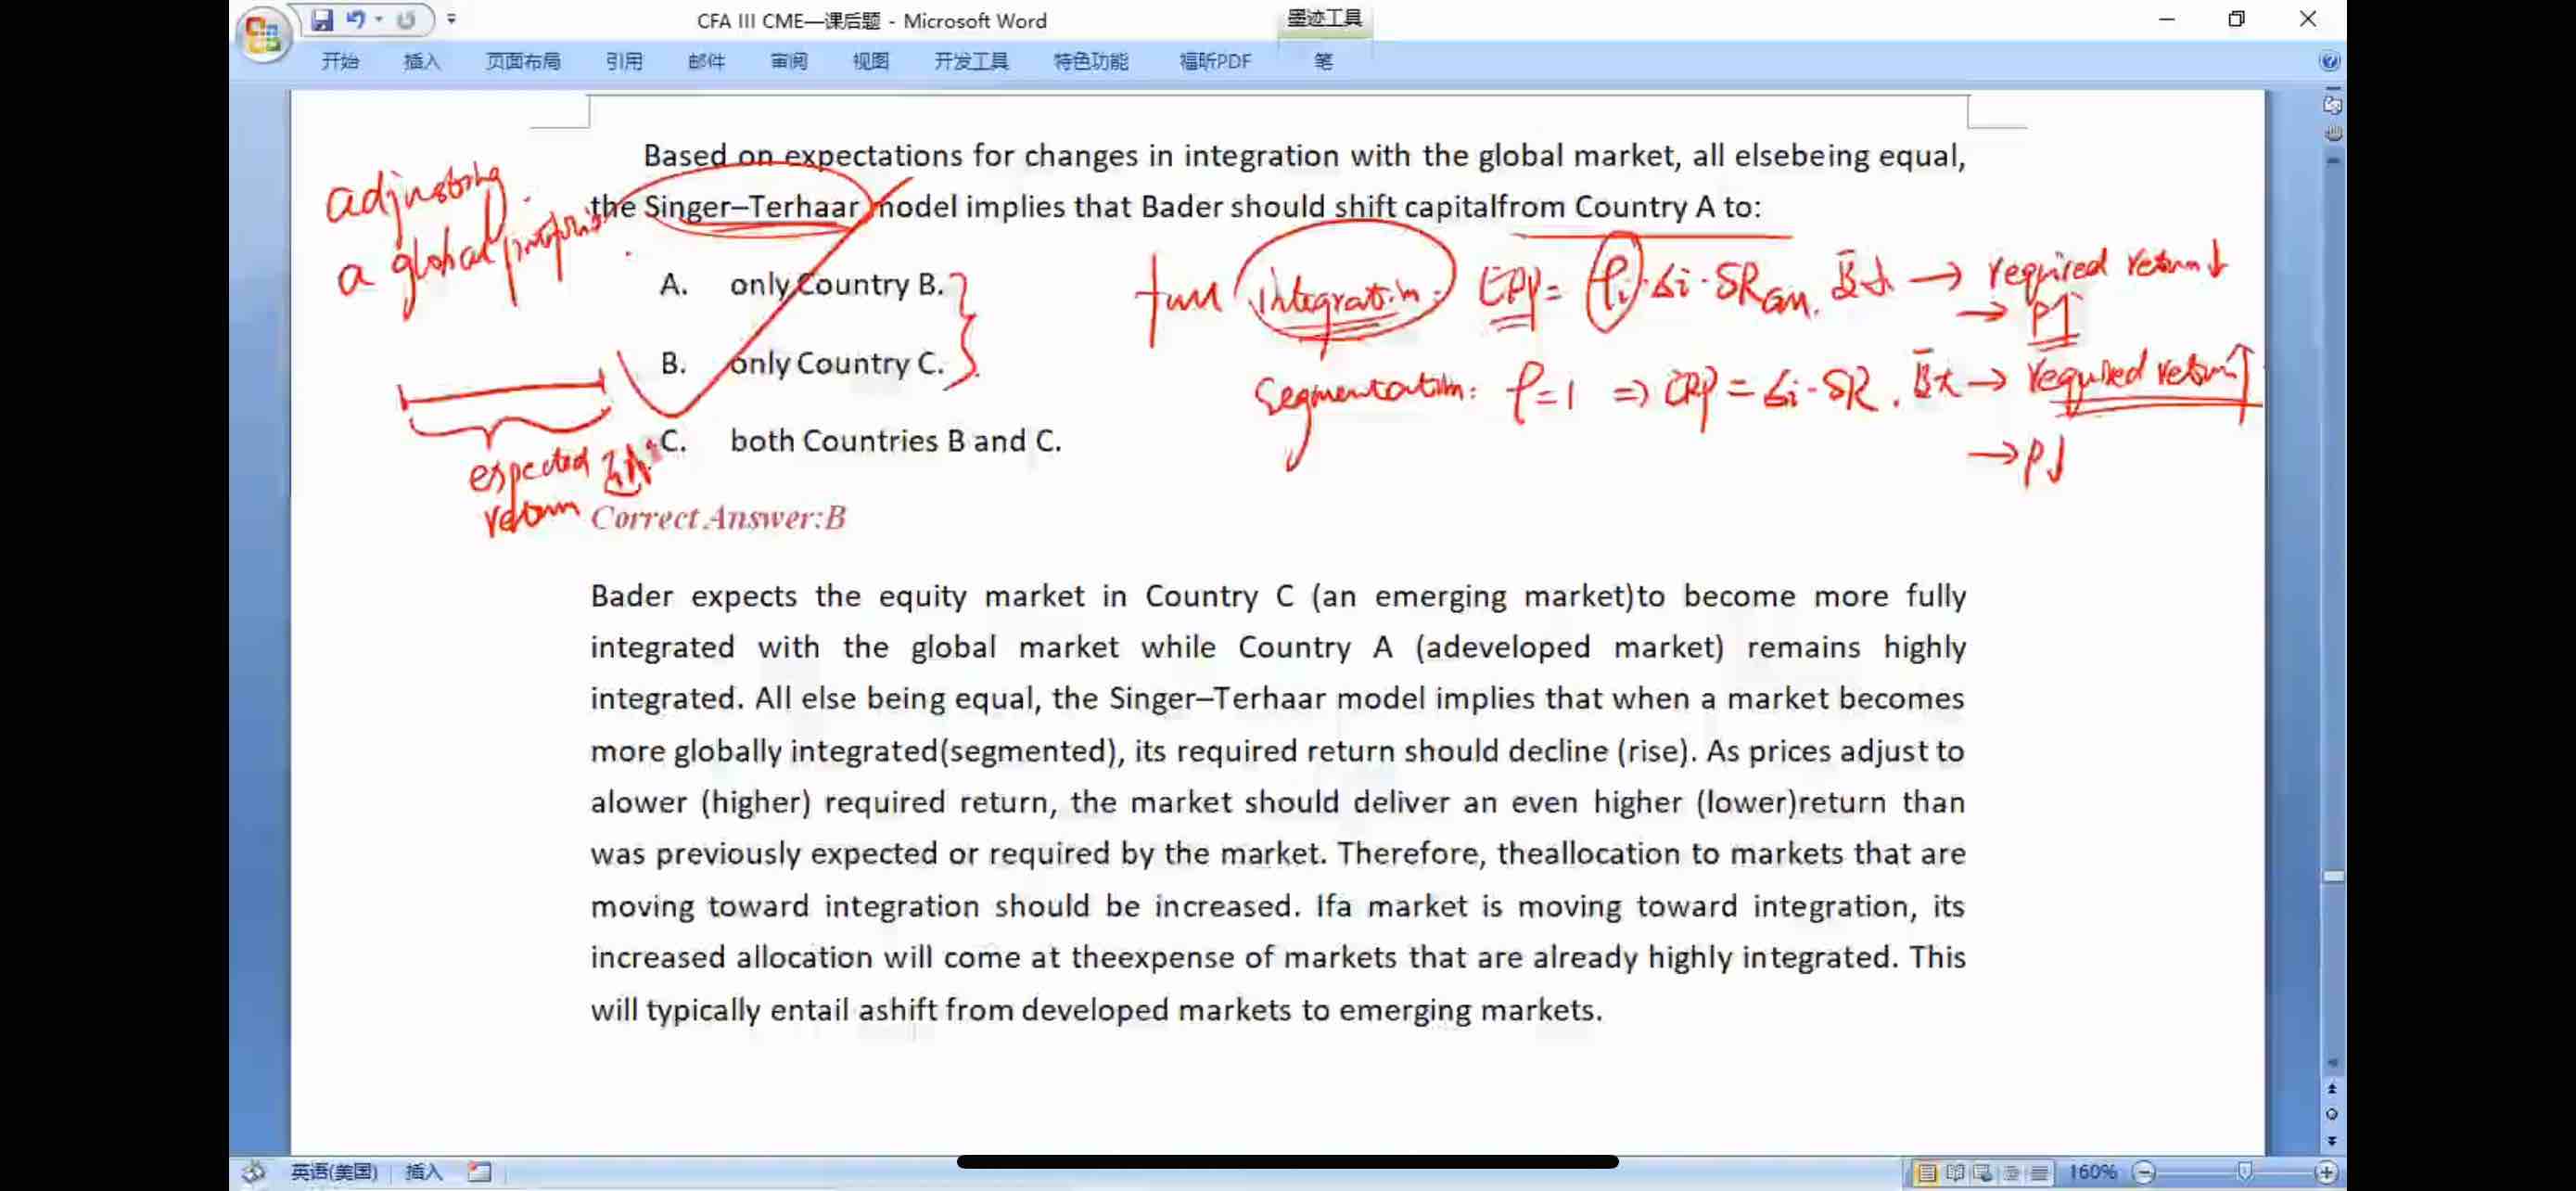 CFA III CME—课后题 - Microsoft Word
墨迹工具
开始 插入 页面布局 引用 邮件 审阅 视图 开发工具 特色功能 福昕PDF 笔
Based on expectations for changes in integration with the global market, all elsebeing equal,
the Singer–Terhaar model implies that Bader should shift capitalfrom Country A to:
adjusting
a global
A. only Country B.
B. only Country C.
C. both Countries B and C.
full integration: ERP = ρi·σi·SRGM. → required return↓
→ P↑
Segmentation: ρ=1 ⇒ ERP = σi·SR. → required return↑
→ P↓
expected
return
Correct Answer:B
Bader expects the equity market in Country C (an emerging market)to become more fully
integrated with the global market while Country A (adeveloped market) remains highly
integrated. All else being equal, the Singer–Terhaar model implies that when a market becomes
more globally integrated(segmented), its required return should decline (rise). As prices adjust to
alower (higher) required return, the market should deliver an even higher (lower)return than
was previously expected or required by the market. Therefore, theallocation to markets that are
moving toward integration should be increased. Ifa market is moving toward integration, its
increased allocation will come at theexpense of markets that are already highly integrated. This
will typically entail ashift from developed markets to emerging markets.
英语(美国) 插入 160%